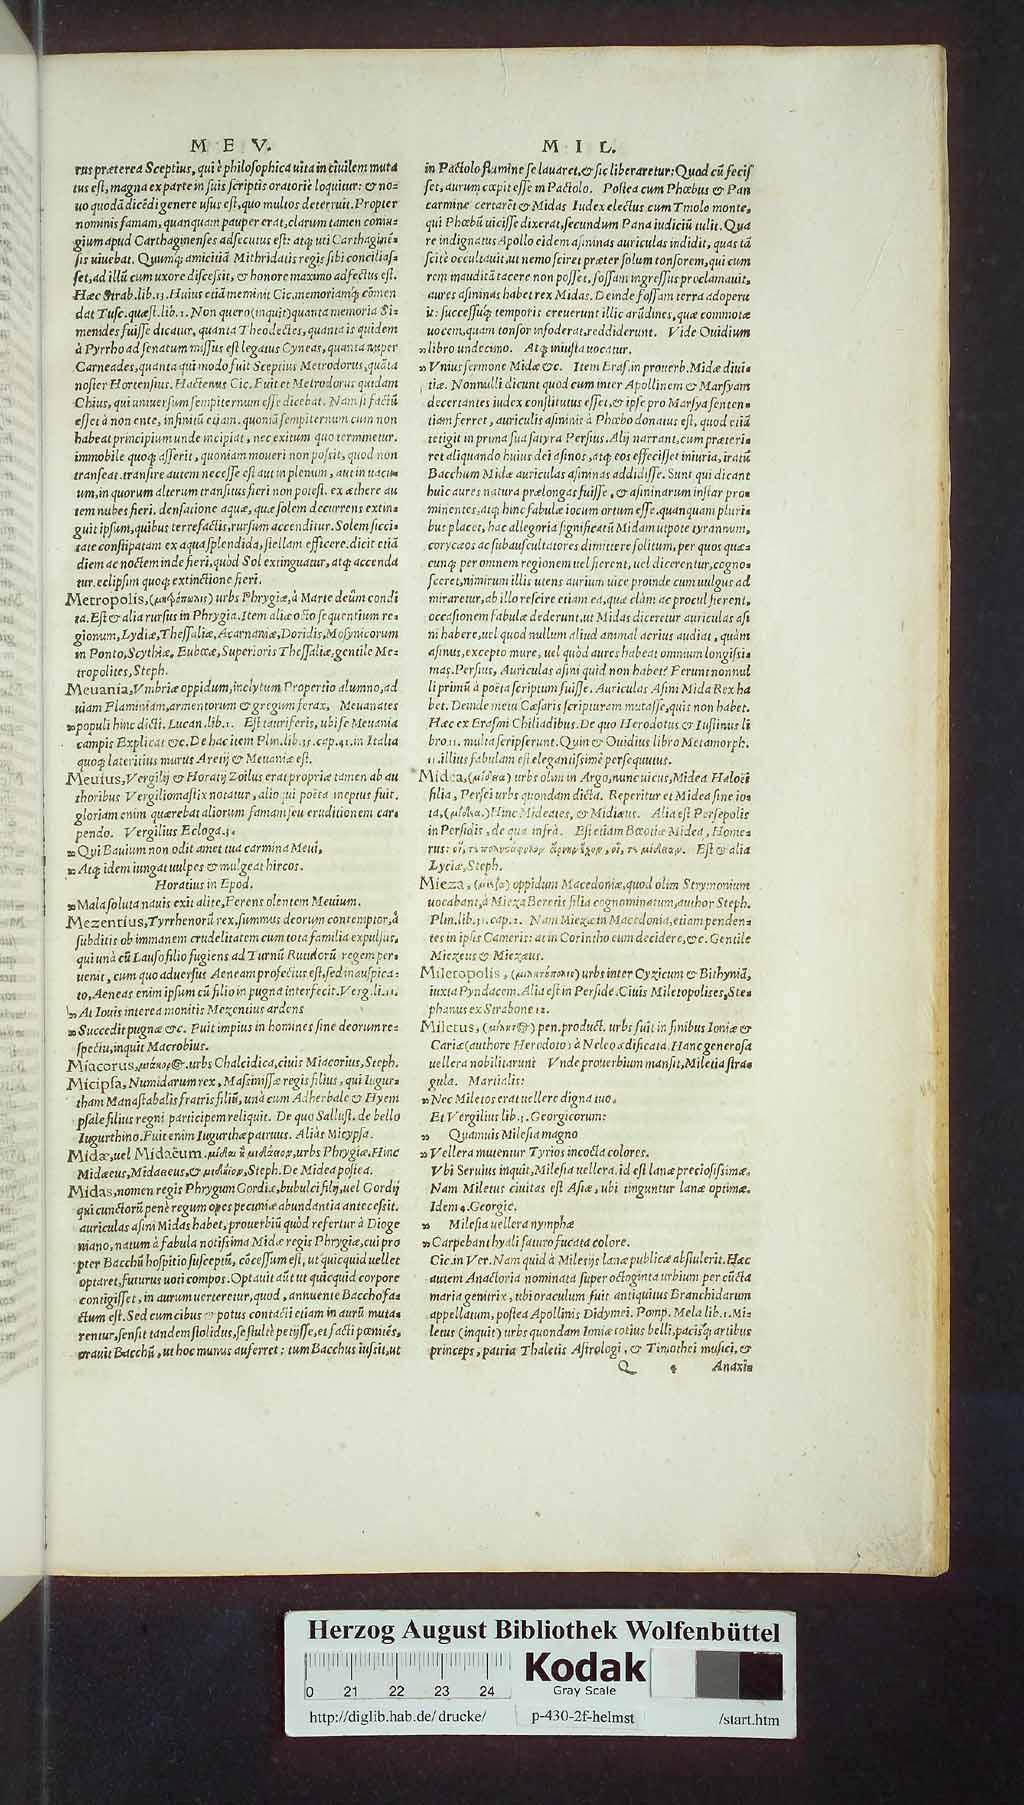 M E V.
rus præterea Sceptius, qui è philosophica uita in ciuilem muta
tus est, magna ex parte in suis scriptis oratoriè loquitur: & no-
uo quodã dicẽdi genere usus est, quo multos deterruit. Propter
nominis famam, quanquam pauper erat, clarum tamen connu-
gium apud Carthaginenses adsecutus est: atq; uti Carthaginẽ-
sis uiuebat. Quumq; amicitiã Mithridatis regis sibi conciliaf-
set, ad illũ cum uxore discessit, & honore maximo adfectus est.
Hæc Strab. lib. 13. Huius etiã meminit Cic. memoriamq; cõmen
dat Tusc. quæst. lib. 1. Non quero (inquit) quanta memoria Si-
menides fuisse dicatur, quanta Theodectes, quanta is quidem
à Pyrrho ad senatum missus est legatus Cyneas, quanta nuper
Carneades, quanta qui modo fuit Sceptius Metrodorus, quãta
noster Hortensius. Hactenus Cic. Fuit et Metrodorus quidam
Chius, qui uniuersum sempiternum esse dicebat. Nam si factũ
esset à non ente, infinitũ etiam. quoniã sempiternum cum non
habeat principium unde incipiat, nec exitum quo terminetur.
immobile quoq; asserit, quoniam moueri non possit, quod non
transeat. transire autem necesse est aut in plenum, aut in uacu-
um, in quorum alterum transitus fieri non potest. ex æthere au
tem nubes fieri. densatione aquæ, quæ solem decurrens extin-
guit ipsum, quibus terrefactis, rursum accenditur. Solem sicci-
tate constipatam ex aqua splendida, stellam efficere. dicit etiã
diem ac noctem inde fieri, quòd Sol extinguatur, atq; accenda
tur. eclipsim quoq; extinctione fieri.
Metropolis, urbs Phrygiæ, à Marte deûm condi
ta. Est & alia rursus in Phrygia. Item aliæ octo sequentium re-
gionum, Lydiæ, Thessaliæ, Acarnaniæ, Doridis, Mosynicorum
in Ponto, Scythiæ, Eubœæ, Superioris Thessaliæ, gentile Me-
tropolites, Steph.
Meuania, Vmbriæ oppidum, inclytum Propertio alumno, ad
uiam Flaminiam, armentorum & gregum ferax, Meuanates
„ populi hinc dicti. Lucan. lib. 1. Est tauriferis, ubi se Meuania
campis Explicat &c. De hac item Plin. lib. 35. cap. 41. in Italia
quoq; lateritius murus Aretij & Meuaniæ est.
Meuius, Vergilij & Horatij Zoilus erat propriè tamen ab au
thoribus Vergiliomastix notatur, alio qui poëta ineptus fuit.
gloriam enim quærebat aliorum famam seu eruditionem car-
pendo. Vergilius Ecloga. 3.
„ Qui Bauium non odit amet tua carmina Meui,
„ Atq; idem iungat uulpes & mulgeat hircos.
Horatius in Epod.
„ Mala soluta nauis exit alite, Ferens olentem Meuium.
Mezentius, Tyrrhenorũ rex, summus deorum contemptor, à
subditis ob immanem crudelitatem cum tota familia expulsus,
qui unà cũ Lauso filio fugiens ad Turnũ Rutulorũ regem per-
uenit, cum quo aduersus Aeneam profectus est, sed inauspica-
to, Aeneas enim ipsum cũ filio in pugna interfecit. Verg. li. 11.
„ At Iouis interea monitis Mezentius ardens
„ Succedit pugnæ &c. Fuit impius in homines sine deorum re-
spectu, inquit Macrobius.
Miacorus, urbs Chalcidica, ciuis Miacorius, Steph.
Micipsa, Numidarum rex, Massinissæ regis filius, qui Iugur-
tham Manastabalis fratris filiũ, unà cum Adherbale & Hyem
psale filius regni participem reliquit. De quo Sallust. de bello
Iugurthino. Fuit enim Iugurthæ patruus. Aliàs Micypsa.
Midæ, uel Midaeum. urbs Phrygiæ, Hinc
Midæeus, Midaeus, & Steph. De Midea postea.
Midas, nomen regis Phrygum Gordiæ, bubulci filij, uel Gordij
qui cunctorũ penè regum opes pecuniæ abundantia antecessit.
auriculas asini Midas habet, prouerbiũ quòd refertur à Dioge
niano, natum à fabula notissima Midæ regis Phrygiæ, cui pro
pter Bacchũ hospitio susceptũ, cõcessum est, ut quicquid uellet
optaret, futurus uoti compos. Optauit aũt ut quicquid corpore
contigisset, in aurum uerteretur, quod, annuente Baccho fa-
ctum est. Sed cum cibus & potus contacti etiam in aurũ muta-
rentur, sensit tandem stolidus, se stultè petijsse, et facti pœnitẽs,
orauit Bacchũ, ut hoc munus auferret: tum Bacchus iussit, ut
M I L.
in Pactolo flumine se lauaret, & sic liberaretur: Quod cũ fecis
set, aurum cœpit esse in Pactolo. Postea cum Phœbus & Pan
carmine certarẽt & Midas Iudex electus cum Tmolo monte,
qui Phœbũ uicisse dixerat, secundum Pana iudiciũ tulit. Qua
re indignatus Apollo eidem asininas auriculas indidit, quas tã
scitè occultauit, ut nemo sciret præter solum tonsorem, qui cum
rem mauditã tacere non posset, fossam ingressus proclamauit,
aures asininas habet rex Midas. Deinde fossam terra adoperu
it: successuq; temporis creuerunt illic arũdines, quæ commotæ
uocem, quam tonsor infoderat, reddiderunt. Vide Ouidium
„ libro undecimo. Atq; iniusta uocatur.
„ Vnius sermone Midæ &c. Item Eras. in prouerb. Midæ diui-
tiæ. Nonnulli dicunt quod cum inter Apollinem & Marsyam
decertantes iudex constitutus esset, & ipse pro Marsya senten-
tiam ferret, auriculis asininis à Phœbo donatus est, quod etiã
tetigit in prima sua satyra Persius. Alij narrant, cum præteri-
ret aliquando huius dei asinos, atq; eos effecisset iniuria, iratũ
Bacchum Midæ auriculas asininas addidisse. Sunt qui dicant
huic aures natura prælongas fuisse, & asininarum instar pro-
minentes, atq; hinc fabulæ iocum ortum esse. quanquam pluri-
bus placet, hac allegoria significatũ Midam utpote tyrannum,
corycæos ac subauscultatores dimittere solitum, per quos quæ-
cunq; per omnem regionem uel fierent, uel dicerentur, cogno-
sceret, nimirum illis utens aurium uice proinde cum uulgus ad
miraretur, ab illo resciri etiam ea, quæ clàm ac procul fierent,
occasionem fabulæ dederunt, ut Midas diceretur auriculas asi
ni habere, uel quod nullum aliud animal acrius audiat, quàm
asinus, excepto mure, uel quòd aures habeat omnium longissi-
mas. Persius, Auriculas asini quid non habet? Ferunt nonnul
li primũ à poëta scriptum fuisse. Auriculas Asini Mida Rex ha
bet. Deinde metu Cæsaris scripturam mutasse, quis non habet.
Hæc ex Erasmi Chiliadibus. De quo Herodotus & Iustinus li
bro 11. multa scripserunt. Quin & Ouidius libro Metamorph.
11. illius fabulam est elegantissimè persequutus.
Midea, urbs olim in Argo, nunc uicus, Midea Haloei
filia, Persei urbs quondam dicta. Reperitur et Midea sine io-
ta, Hinc Mideates, & Midæus. Alia est Persepolis
in Persidis, de qua infrà. Est etiam Bœotiæ Midea, Home-
rus: Est & alia
Lyciæ, Steph.
Mieza, oppidum Macedoniæ, quod olim Strymonium
uocabant, à Mieza Bereris filia cognominatum, author Steph.
Plin. lib. 31. cap. 2. Nam Mieza in Macedonia, etiam penden-
tes in ipsis Cameris: at in Corintho eum decidere, &c. Gentile
Miezeus & Miezæus.
Miletopolis, urbs inter Cyzicum & Bithyniã,
iuxta Pyndacem. Alia est in Perside. Ciuis Miletopolites, Ste-
phanus ex Strabone 12.
Miletus, pen. product. urbs fuit in finibus Ioniæ &
Cariæ (authore Herodoto) à Neleo ædificata. Hanc generosa
uellera nobilitarunt Vnde prouerbium mansit, Milesia stra-
gula. Martialis:
„ Nec Miletos erat uellere digna tuo,
Et Vergilius lib. 3. Georgicorum:
„ Quamuis Milesia magno
„ Vellera mutentur Tyrios incocta colores.
Vbi Seruius inquit, Milesia uellera. id est lanæ preciosissimæ.
Nam Miletus ciuitas est Asiæ, ubi tinguntur lanæ optimæ.
Idem 4. Georgic.
„ Milesia uellera nymphæ
„ Carpebant hyali saturo fucata colore.
Cic. in Ver. Nam quid à Milesijs lanæ publicæ abstulerit. Hæc
autem Anactoria nominata super octoginta urbium per cũcta
maria genitrix, ubi oraculum fuit antiquitus Branchidarum
appellatum, postea Apollinis Didymei. Pomp. Mela lib. 1. Mi-
letus (inquit) urbs quondam Ioniæ totius belli, pacisq; artibus
princeps, patria Thaletis Astrologi, & Timothei musici, &
Q 4 Anaxi-
Herzog August Bibliothek Wolfenbüttel
0 21 22 23 24
Kodak
Gray Scale
http://diglib.hab.de/drucke/ p-430-2f-helmst /start.htm